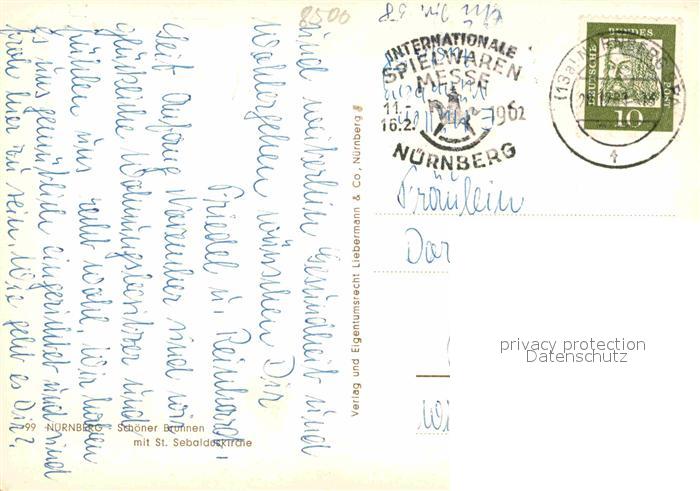 8500
INTERNATIONALE
SPIELWAREN
MESSE
11.-
16.2.
1962
NÜRNBERG
(13a) NÜRNBERG
DEUTSCHE BUNDESPOST
10
Fräulein
Dor
privacy protection
Datenschutz
Verlag und Eigentumsrecht Liebermann & Co., Nürnberg
und weiterhin Gesundheit und
Wohlergehen wünschen Dir
Friedel u. Reinhard.
Seit Anfang November sind wir
glückliche Wohnungsbesitzer und
fühlen uns recht wohl. Wir haben
es uns gemütlich eingerichtet und sind
froh hier zu sein. Wie geht es Dir?
99 NÜRNBERG - Schöner Brunnen
mit St. Sebalduskirche